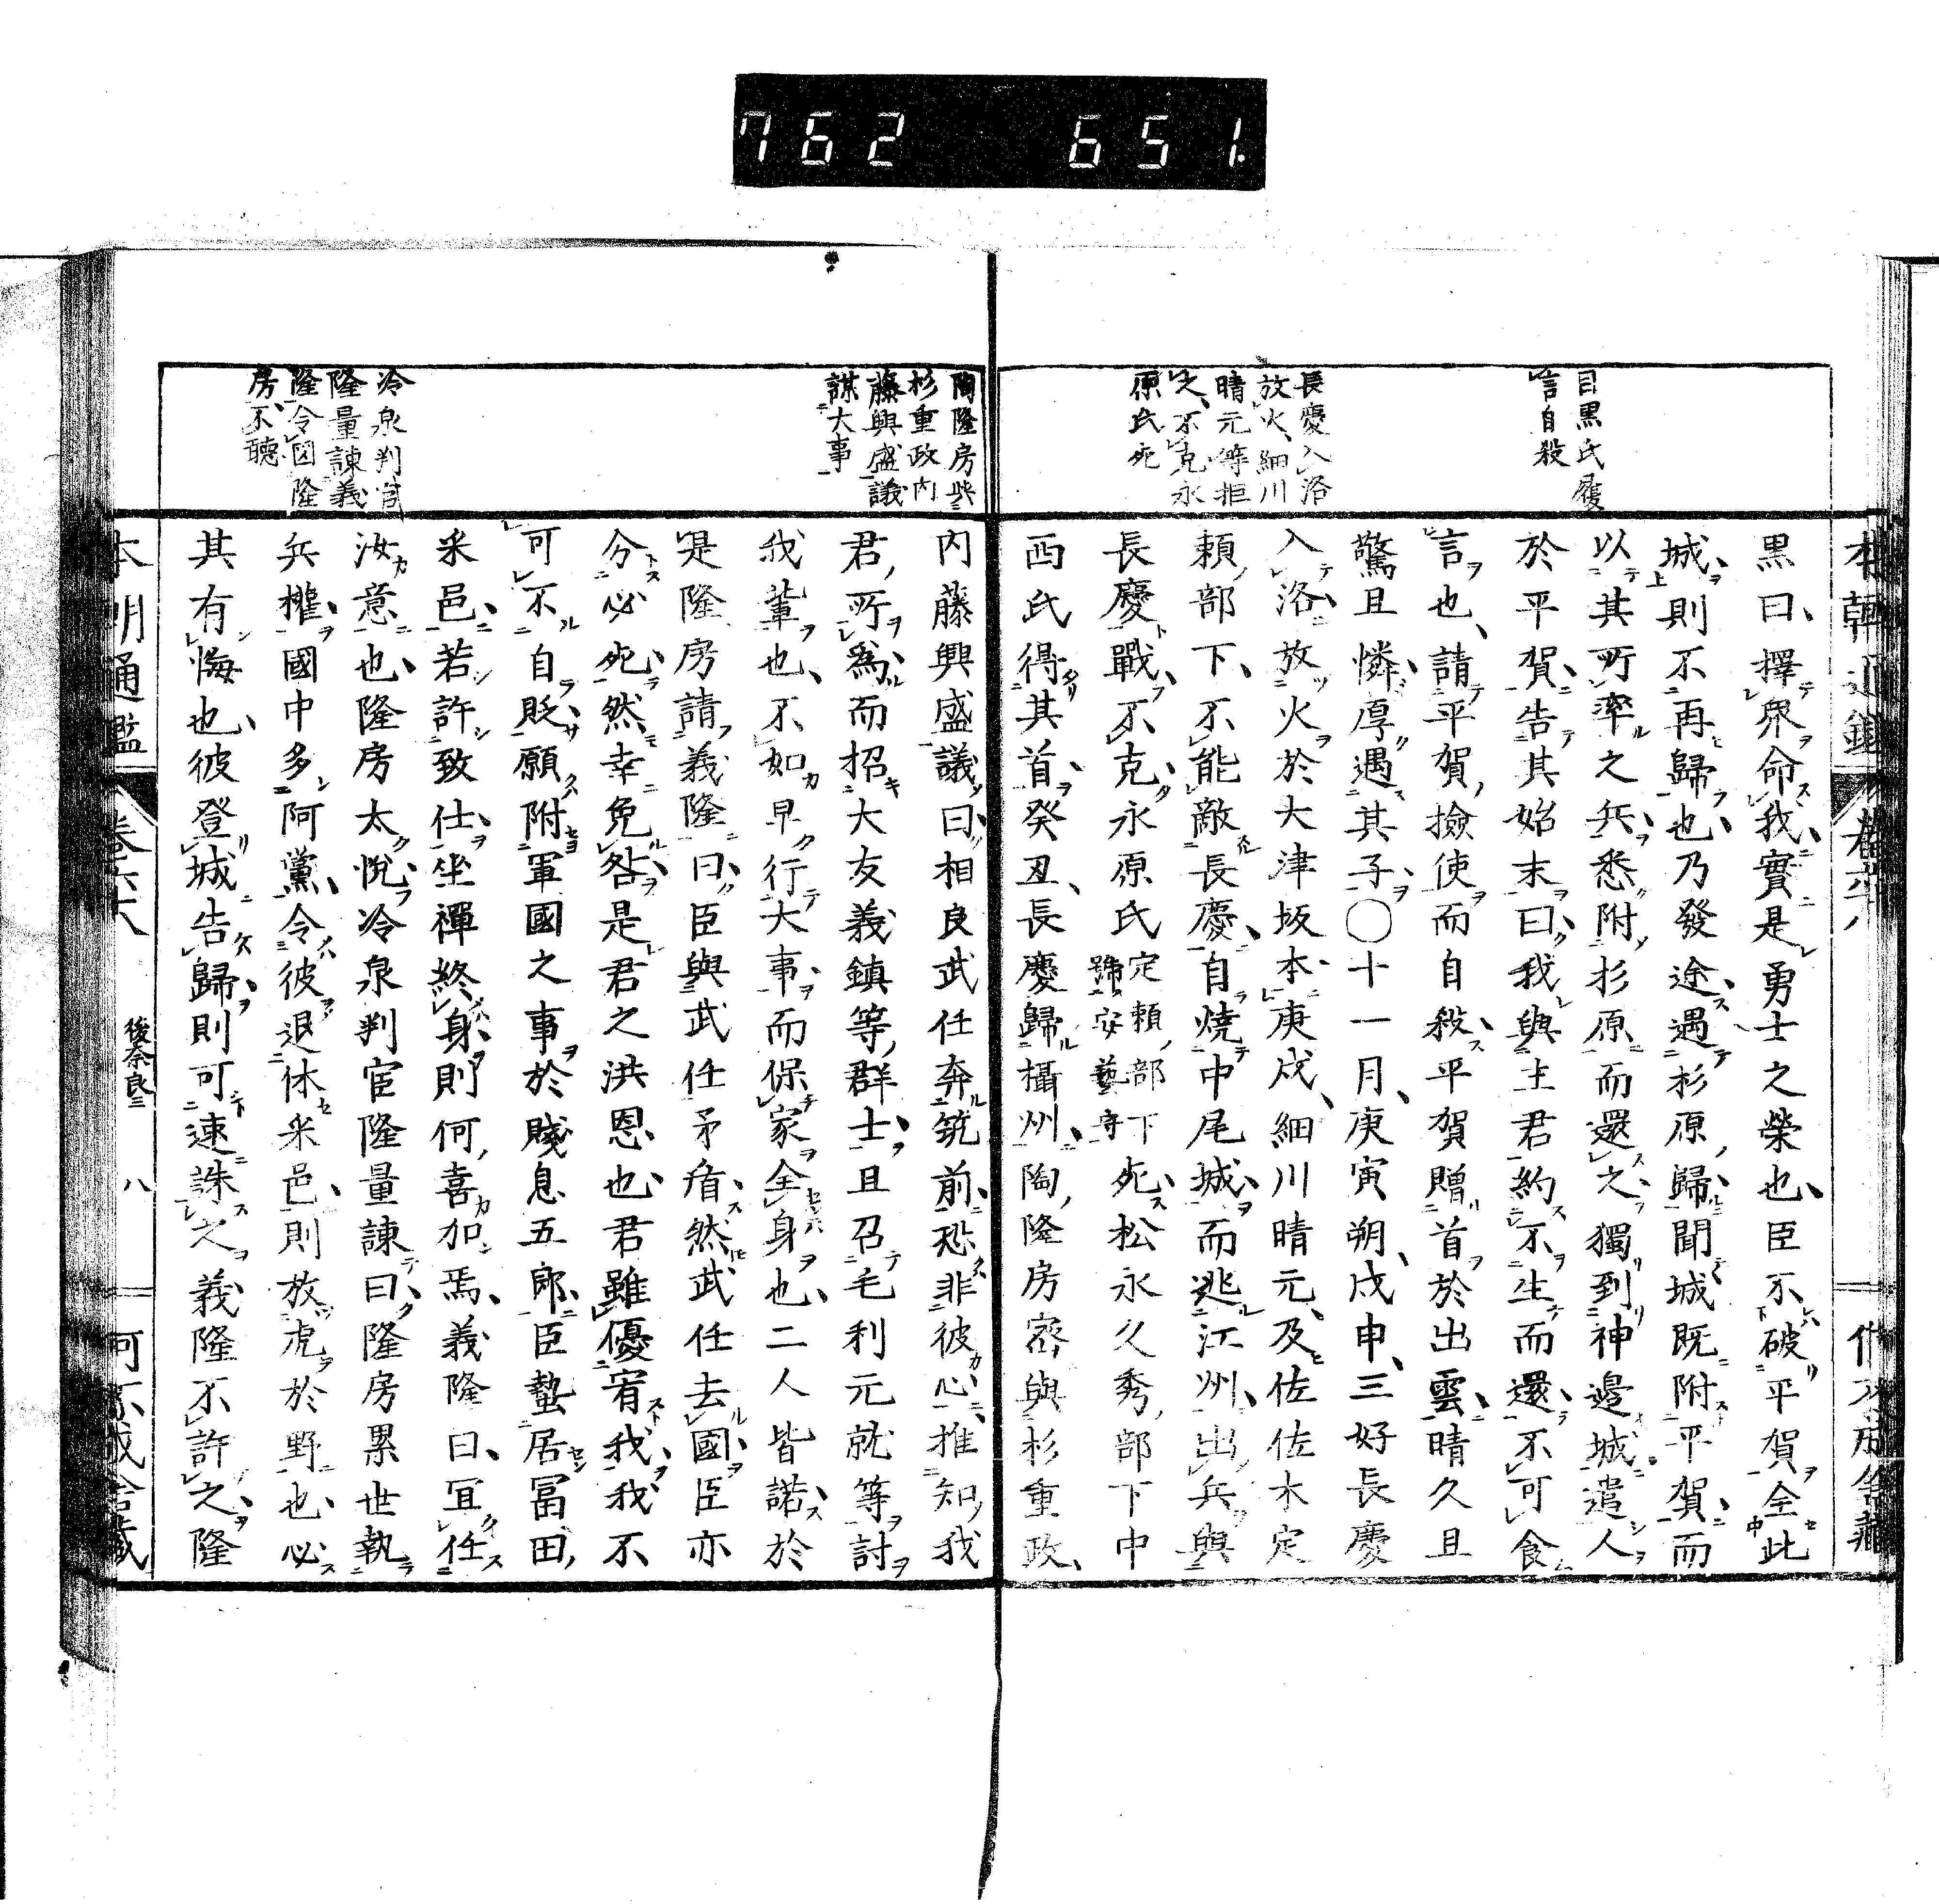 762 651.
目黒氏履
言自殺
長慶入洛
放火細川
晴元等拒
之不克永
原氏死
黒曰擇衆命我實是勇士之榮也臣不破平賀全此
城則不再歸也乃發途遇杉原歸聞城既附平賀而
以其所率之兵悉附杉原而還之獨到神邊城遣人
於平賀告其始末曰我與主君約不生而還不可食
言也請平賀撿使而自殺平賀贈首於出雲晴久且
驚且憐厚遇其子〇十一月庚寅朔戊申三好長慶
入洛放火於大津坂本庚戌細川晴元及佐佐木定
頼部下不能敵長慶自燒中尾城而逃江州出兵與
長慶戰不克永原氏定頼部下號安藝守死松永久秀部下中
西氏得其首癸丑長慶歸攝州陶隆房密與杉重政
陶隆房與
杉重政内
藤興盛議
謀大事
冷泉判官
隆量諫義
隆令囚隆
房不聽
内藤興盛議曰相良武任奔筑前恐非彼心推知我
君所爲而招大友義鎮等群士且召毛利元就等討
我輩也不如早行大事而保家全身也二人皆諾於
是隆房請義隆曰臣與武任矛盾然武任去國臣亦
分必死然幸免咎是君之洪恩也君雖優宥我我不
可不自貶願附軍國之事於賤息五郎臣蟄居冨田
釆邑若許致仕坐禪終身則何喜加焉義隆曰宜任
汝意也隆房太悦冷泉判官隆量諫曰隆房累世執
兵權國中多阿黨令彼退休釆邑則放虎於野也必
其有悔也彼登城告歸則可速誅之義隆不許之隆
本朝通鑑
卷六十八
後奈良三
八